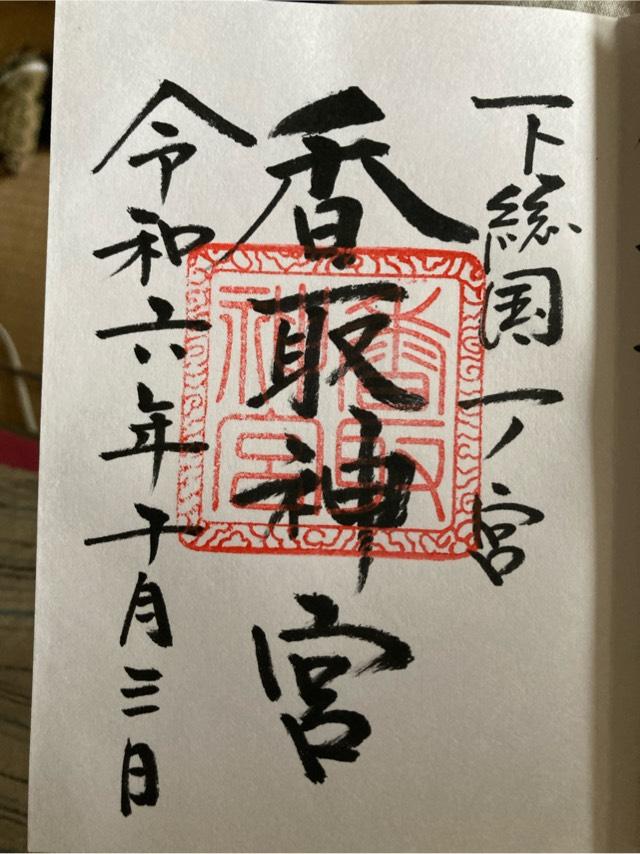 下総国一ノ宮
香取神宮
香取神宮
令和六年十月三日